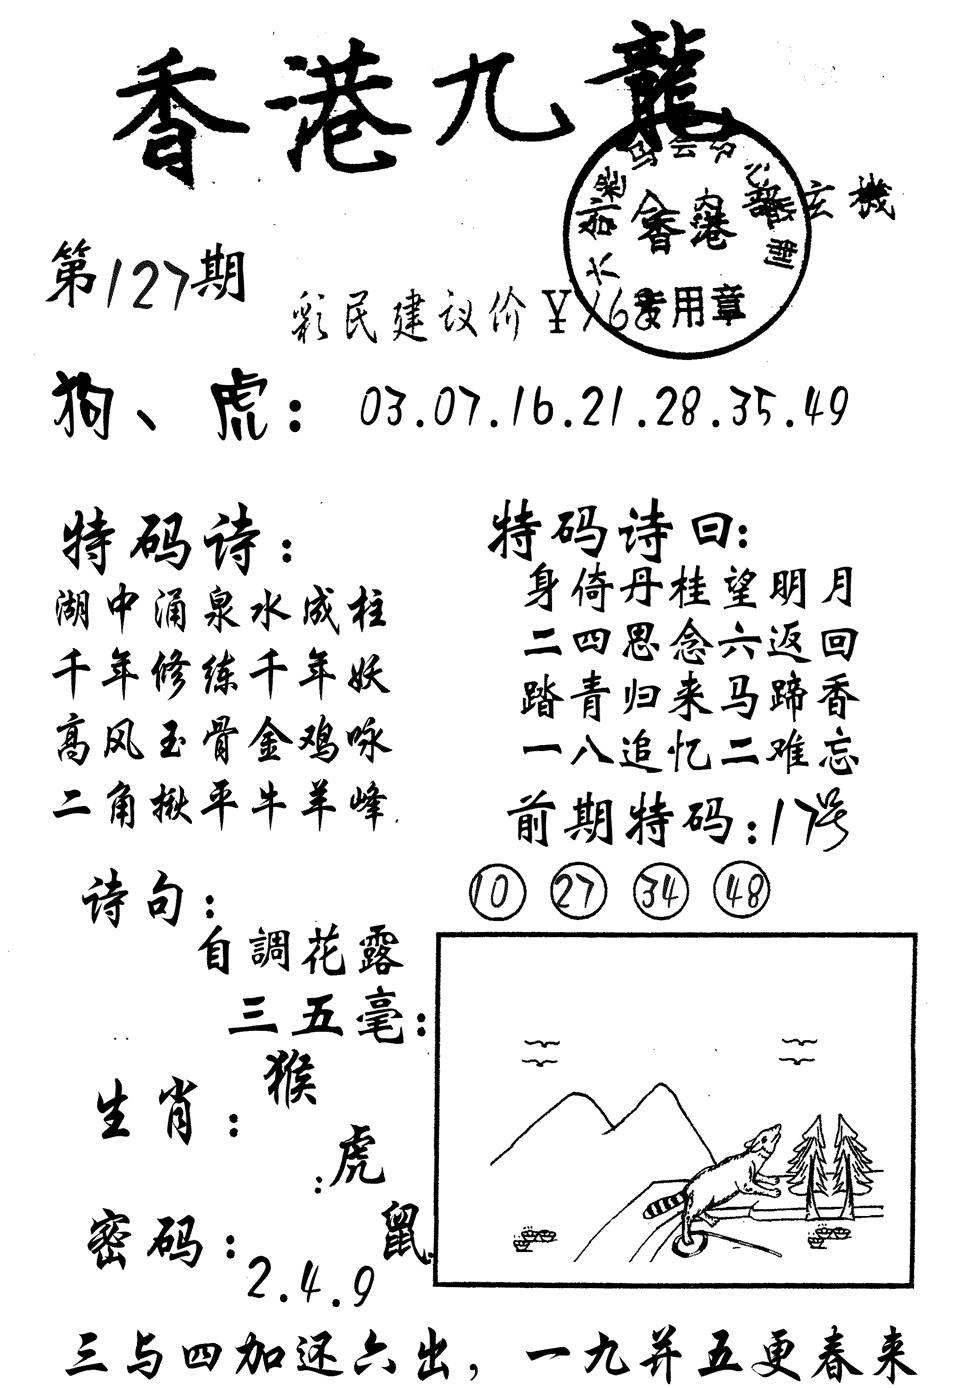 香港九龍
玄機
香港
专用章
第127期
彩民建议价¥168
狗、虎：03.07.16.21.28.35.49
特码诗：
湖中涌泉水成柱
千年修练千年妖
高风玉骨金鸡咏
二角揪平牛羊峰
特码诗曰：
身倚丹桂望明月
二四思念六返回
踏青归来马蹄香
一八追忆二难忘
前期特码：17号
10 27 34 48
诗句：
自調花露
三五毫：
生肖：猴
：虎
鼠
密码：2.4.9
三与四加还六出，一九并五更春来